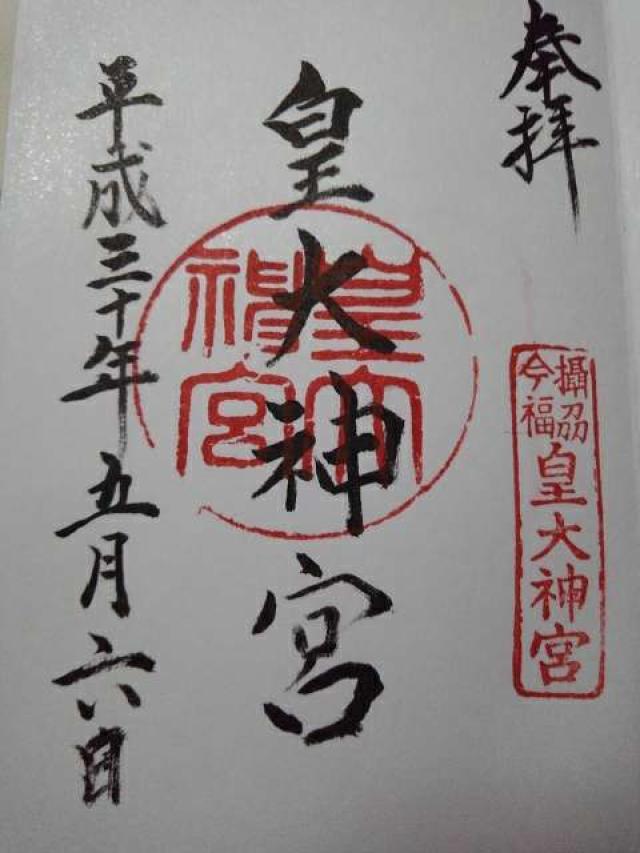 奉拝
攝刕
今福
皇大神宮
皇大神宮
皇大
神宮
平成三十年五月六日